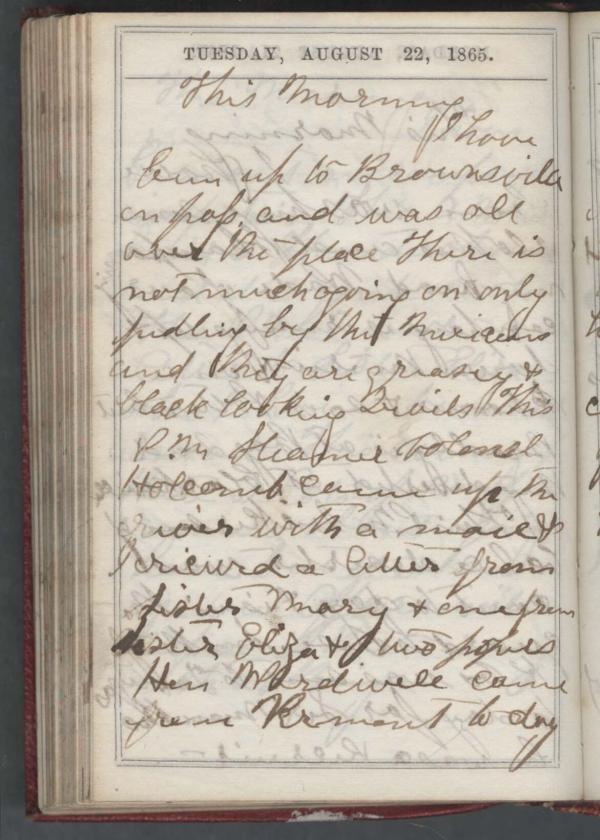 TUESDAY, AUGUST 22, 1865.
This Morning
I have
benn up to Brownsvill
on pass and was all
over the place There is
not much agoing on only
pedling by the Mexicans
and they are greasy &
black looking Devils This
P.M. Steamer Colonel
Holcomb Came up the
river with a mail &
I recieved a letter from
sister Mary & one from
sister Eliza & two papers
Hen Wardwell came
from Vermont to day